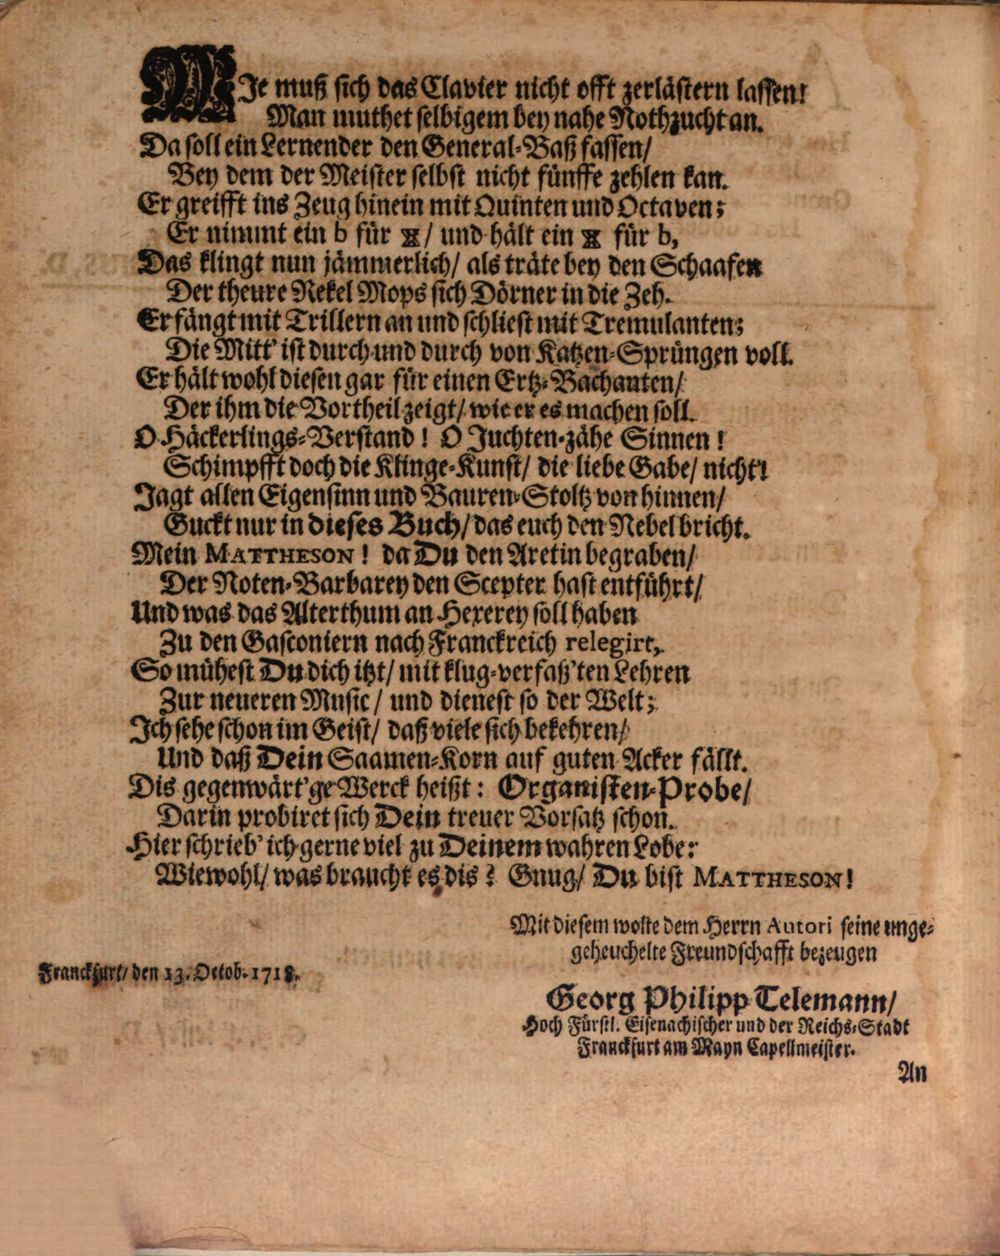 WIe muß sich das Clavier nicht offt zerlästern lassen!
Man muthet selbigem bey nahe Nothzucht an.
Da soll ein Lernender den General-Baß fassen/
Bey dem der Meister selbst nicht fünffe zehlen kan.
Er greifft ins Zeug hinein mit Quinten und Octaven;
Er nimmt ein b für ♯/ und hält ein ♯ für b,
Das klingt nun jämmerlich/ als träte bey den Schaafen
Der theure Rekel Mops sich Dörner in die Zeh.
Er fängt mit Trillern an und schliest mit Tremulanten;
Die Mitt' ist durch und durch von Katzen-Sprüngen voll.
Er hält wohl diesen gar für einen Ertz-Bachanten/
Der ihm die Vortheil zeigt/ wie er es machen soll.
O Häckerlings-Verstand! O Juchten-zähe Sinnen!
Schimpfft doch die Klinge-Kunst/ die liebe Gabe/ nicht!
Jagt allen Eigensinn und Bauren-Stoltz von hinnen/
Guckt nur in dieses Buch/ das euch den Nebel bricht.
Mein MATTHESON! da Du den Aretin begraben/
Der Noten-Barbarey den Scepter hast entführt/
Und was das Alterthum an Hexerey soll haben
Zu den Gasconiern nach Franckreich relegirt,
So mühest Du dich itzt/ mit klug-verfaß'ten Lehren
Zur neueren Music/ und dienest so der Welt;
Ich sehe schon im Geist/ daß viele sich bekehren/
Und daß Dein Saamen-Korn auf guten Acker fällt.
Dis gegenwärt'ge Werck heißt: Organisten-Probe/
Darin probiret sich Dein treuer Vorsatz schon.
Hier schrieb' ich gerne viel zu Deinem wahren Lobe:
Wiewohl/ was braucht es dis? Gnug/ Du bist MATTHESON!
Mit diesem wolte dem Herrn Autori seine unge-
geheuchelte Freundschafft bezeugen
Franckfurt/ den 13. Octob. 1718.
Georg Philipp Telemann/
Hoch Fürstl. Eisenachischer und der Reichs-Stadt
Franckfurt am Mayn Capellmeister.
An